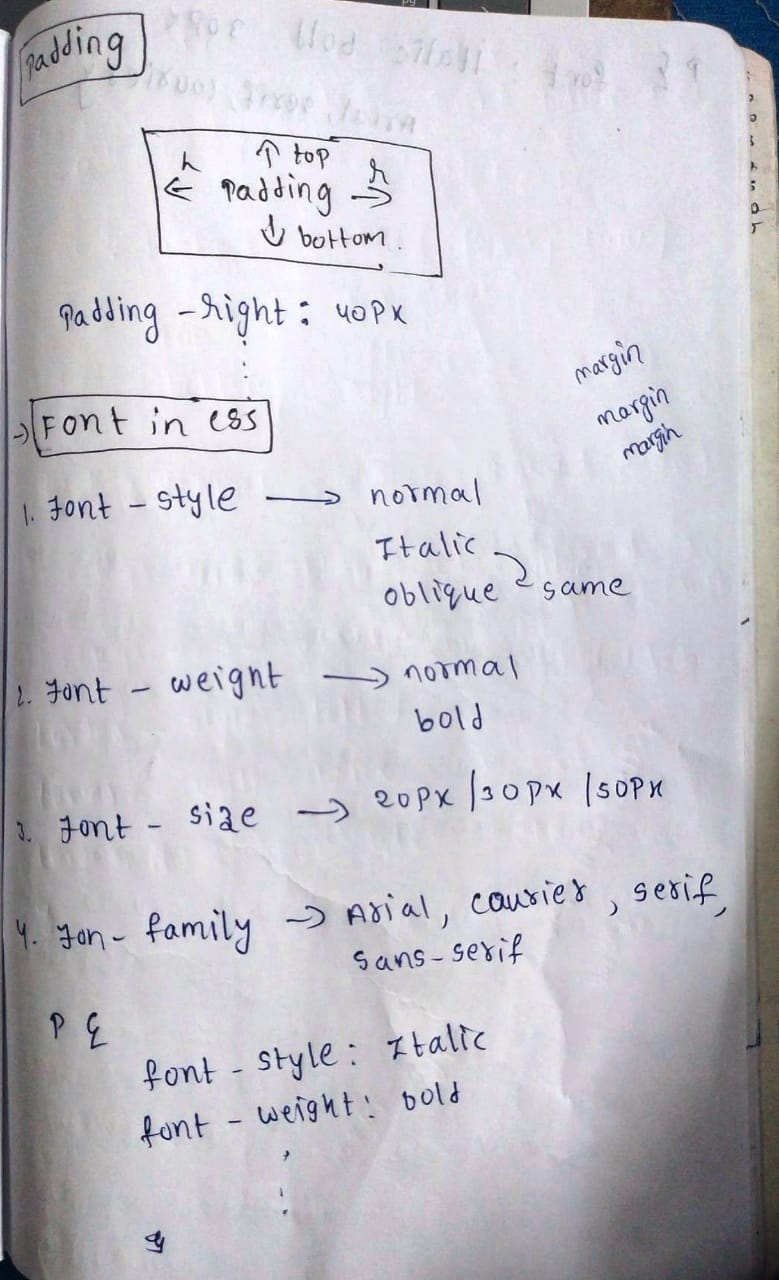 Padding
↑ top
← Padding →
↓ bottom.
Padding - right : 40PX
margin
margin
margin
→ Font in css
1. Font - style → normal
Italic
oblique same
2. Font - weight → normal
bold
3. Font - size → 20PX / 30PX / 50PX
4. Fon - family → Arial, courier, serif,
sans-serif
P {
font - style : Italic
font - weight : bold
}